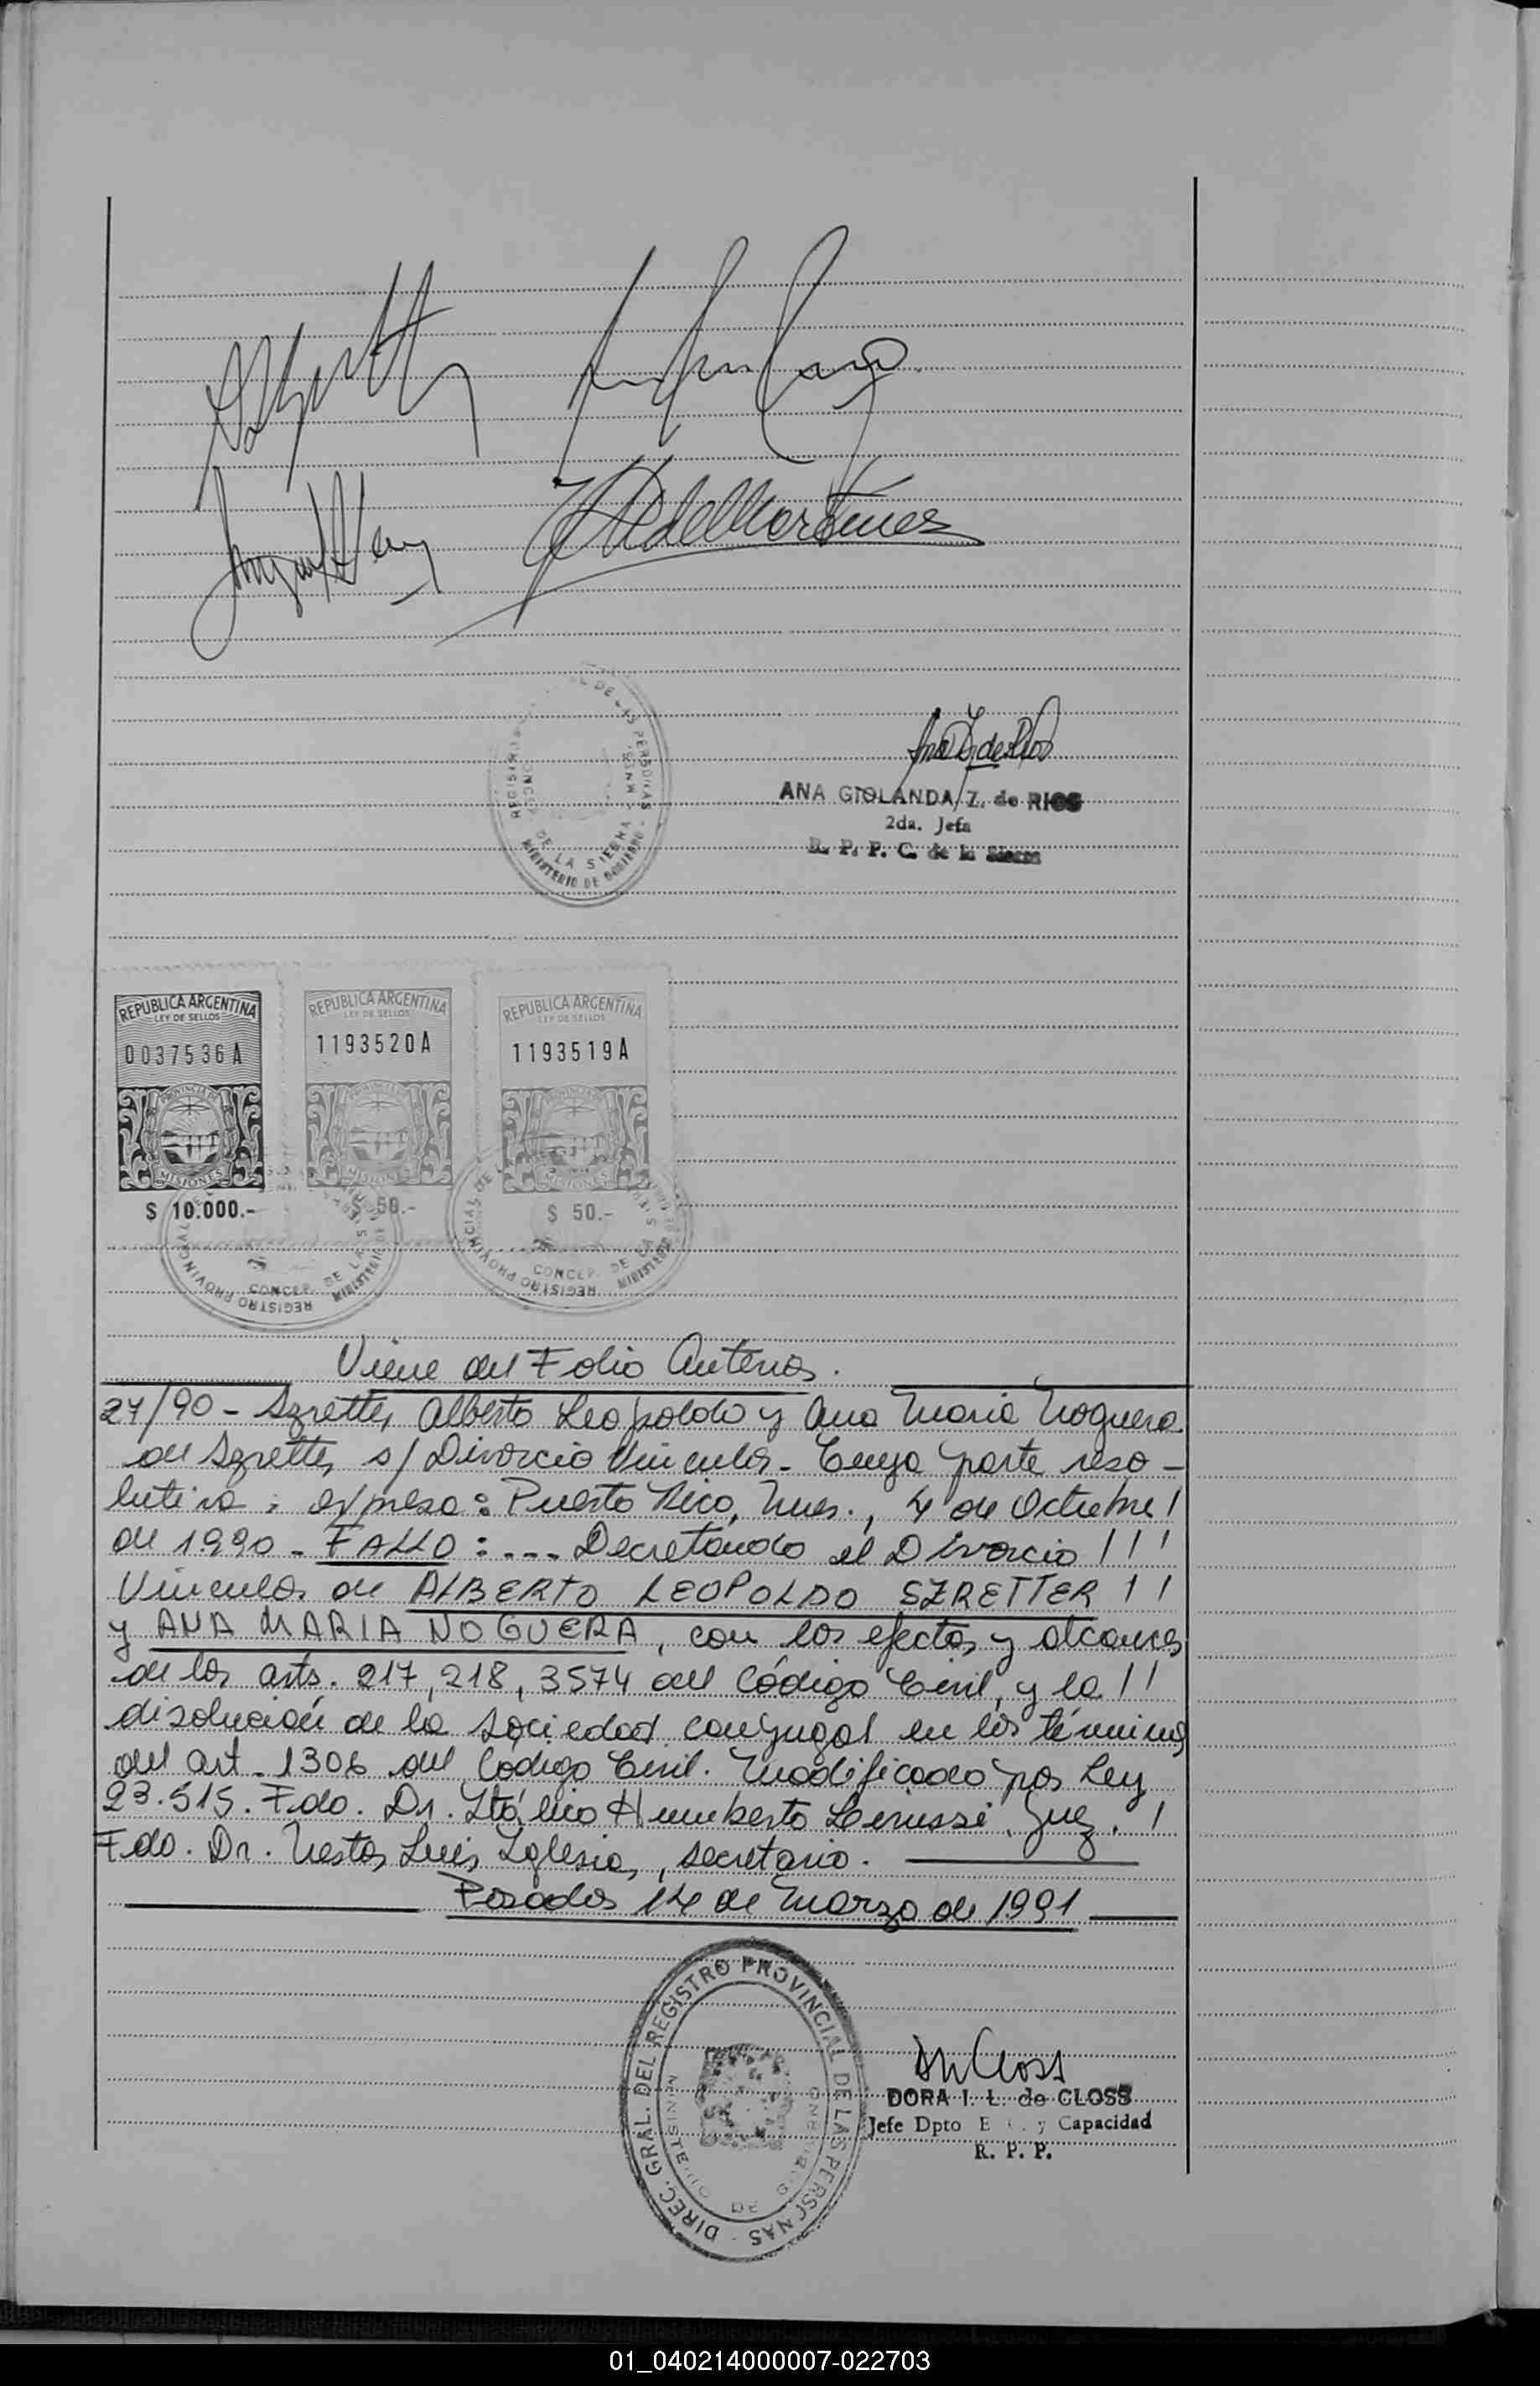 ANA GIOLANDA Z. de RIOS
2da. Jefa
R. P. P. C. de la Sierra
DE LAS PERSONAS
DE LA SIERRA - MNES.
MINISTERIO DE GOBIERNO
REPUBLICA ARGENTINA
LEY DE SELLOS
0037536A
PROVINCIA DE
MISIONES
$ 10.000.-
REPUBLICA ARGENTINA
LEY DE SELLOS
1193520A
MISIONES
$ 50.-
REPUBLICA ARGENTINA
LEY DE SELLOS
1193519A
MISIONES
$ 50.-
REGISTRO PROVINCIAL
CONCEP. DE LA S
REGISTRO PROVINCIAL DE
CONCEP. DE LA S
Viene del Folio Anterior.
27/90 - Szretter, Alberto Leopoldo y Ana Maria Noguera
de Szretter, s/ Divorcio Vincular - Cuya parte reso-
lutiva: expresa: Puerto Rico, Mnes., 4 de Octubre!
de 1990 - FALLO: --- Decretando el Divorcio !!!
Vincular de ALBERTO LEOPOLDO SZRETTER !!
y ANA MARIA NOGUERA, con los efectos y alcances
de los arts. 217, 218, 3574 del Código Civil, y la !!
disolución de la sociedad conyugal en los términos
del art. 1306 del Código Civil. Modificado por Ley
23.515. Fdo. Dr. Itálico Humberto Juez. !
Fdo. Dr. Nestor Luis Iglesias, secretario.
Posadas 14 de Marzo de 1991
DIREC. GRAL. DEL REGISTRO PROVINCIAL DE LAS PERSONAS
MINISTERIO DE
DORA I. L. de CLOSS
Jefe Dpto E . y Capacidad
R. P. P.
01_040214000007-022703